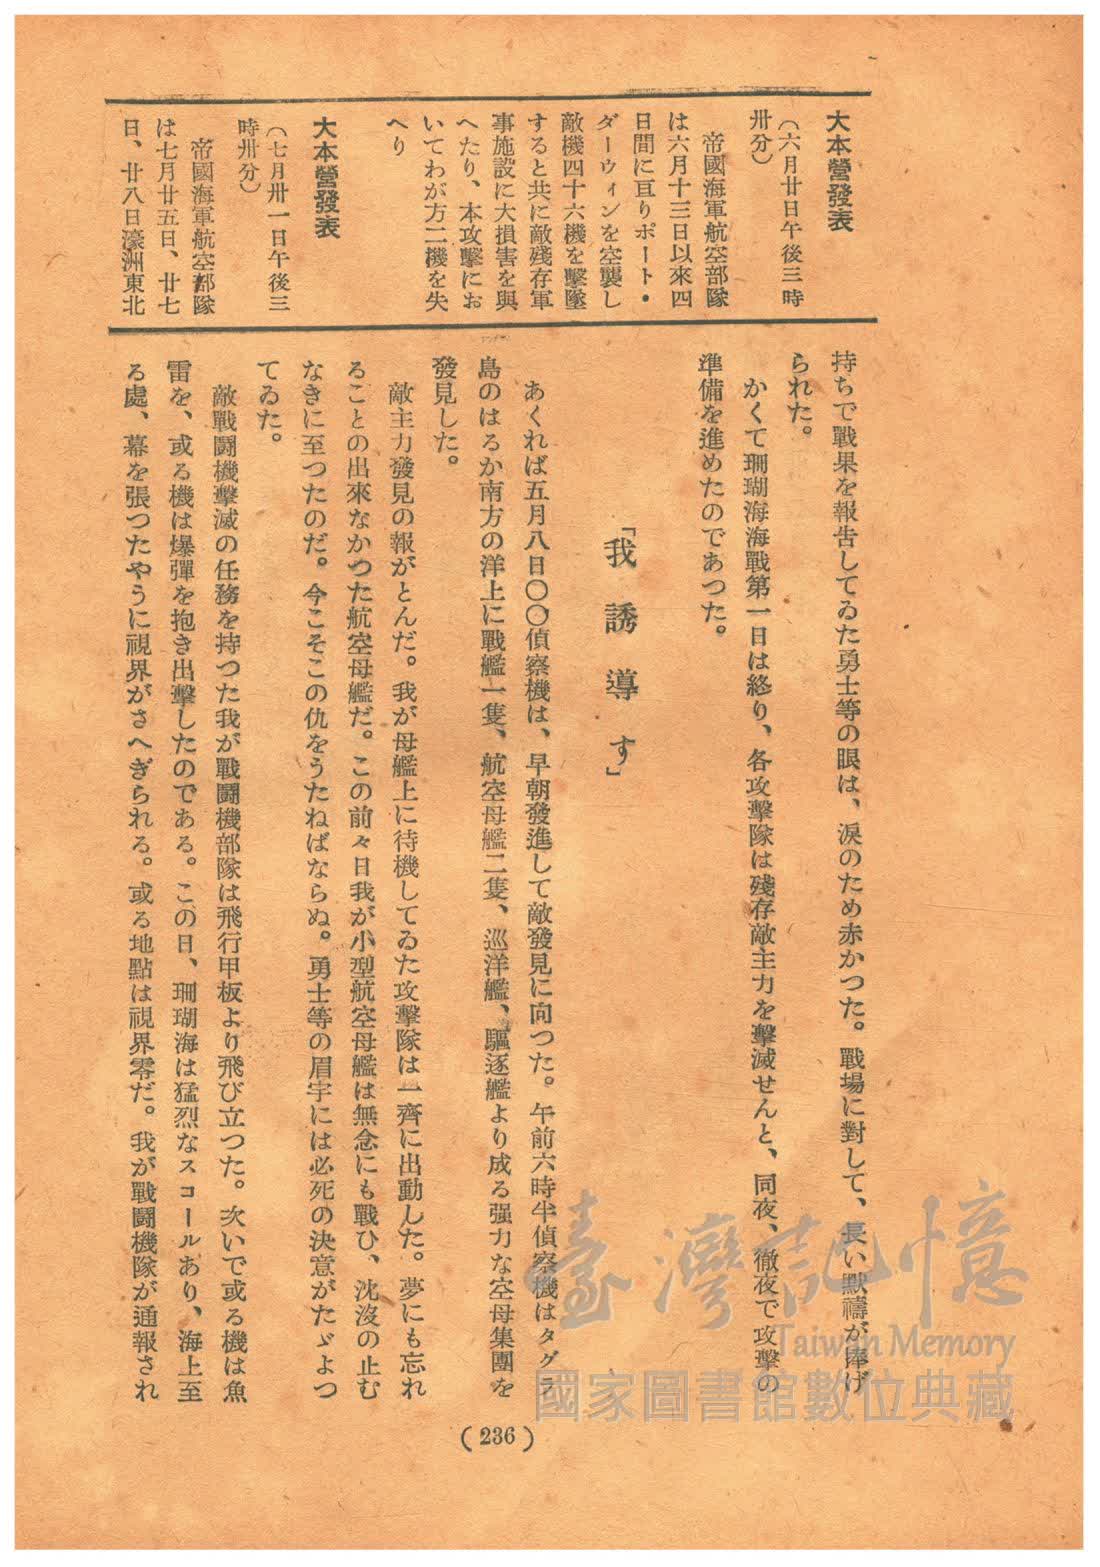 大本營發表
(六月廿日午後三時
卅分)
帝國海軍航空部隊
は六月十三日以來四
日間に亘りポート・
ダーウィンを空襲し
敵機四十六機を擊墜
すると共に敵殘存軍
事施設に大損害を與
へたり、本攻擊にお
いてわが方二機を失
へり
大本營發表
(七月卅一日午後三
時卅分)
帝國海軍航空部隊
は七月廿五日、廿七
日、廿八日濠洲東北
持ちで戰果を報告してゐた勇士等の眼は、淚のため赤かつた。戰場に對して、長い默禱が捧げ
られた。
かくて珊瑚海海戰第一日は終り、各攻擊隊は殘存敵主力を擊滅せんと、同夜、徹夜で攻擊の
準備を進めたのであつた。
「我誘導す」
あくれば五月八日〇〇偵察機は、早朝發進して敵發見に向つた。午前六時半偵察機はタグラ
島のはるか南方の洋上に戰艦一隻、航空母艦二隻、巡洋艦、驅逐艦より成る强力な空母集團を
發見した。
敵主力發見の報がとんだ。我が母艦上に待機してゐた攻擊隊は一齊に出動した。夢にも忘れ
ることの出來なかつた航空母艦だ。この前々日我が小型航空母艦は無念にも戰ひ、沈沒の止む
なきに至つたのだ。今こそこの仇をうたねばならぬ。勇士等の眉宇には必死の決意がたゞよつ
てゐた。
敵戰鬪機擊滅の任務を持つた我が戰鬪機部隊は飛行甲板より飛び立つた。次いで或る機は魚
雷を、或る機は爆彈を抱き出擊したのである。この日、珊瑚海は猛烈なスコールあり、海上至
る處、幕を張つたやうに視界がさへぎられる。或る地點は視界零だ。我が戰鬪機隊が通報され
(236)
臺灣記憶
Taiwan Memory
國家圖書館數位典藏